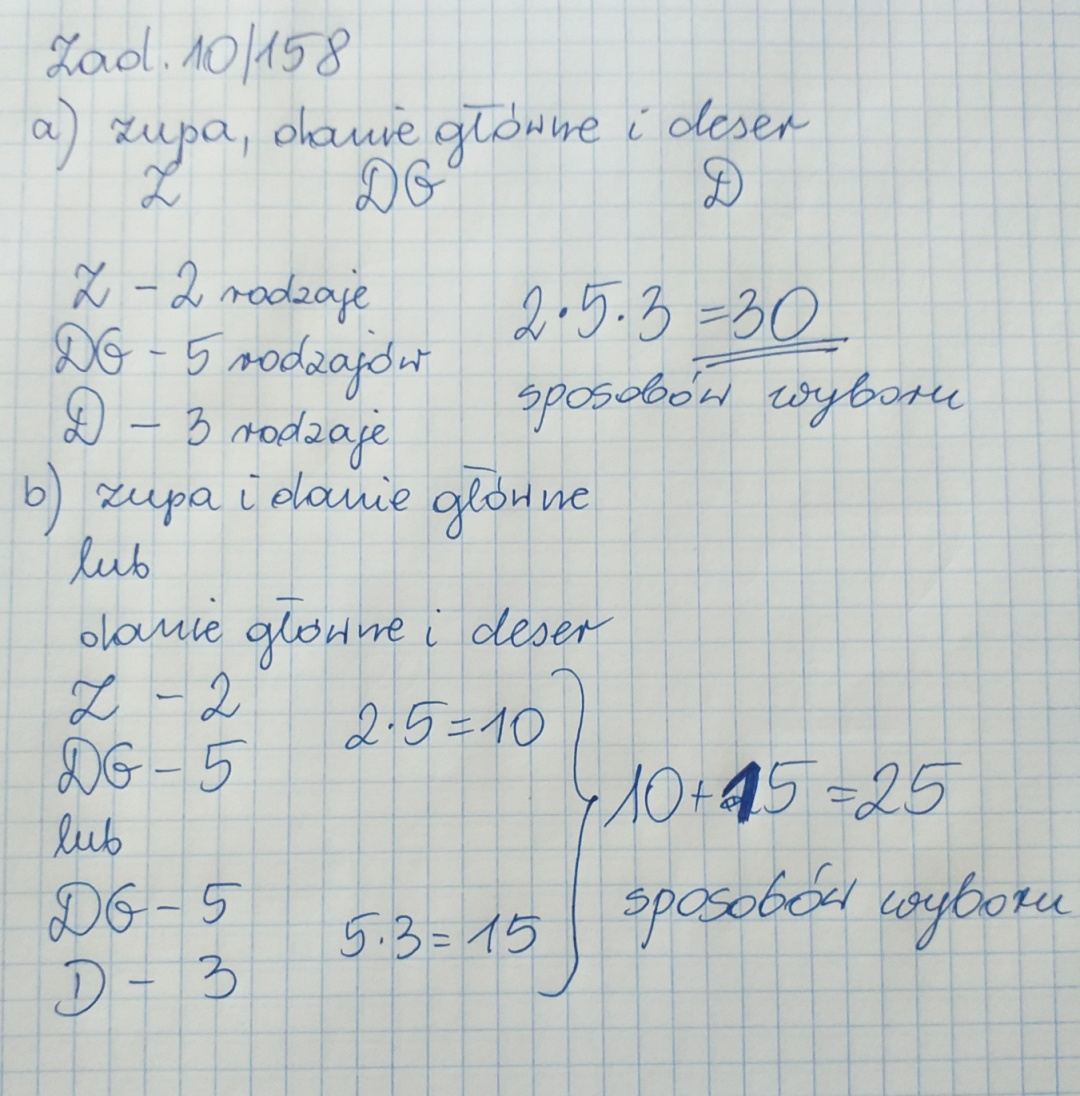 Zad. 10/158
a) zupa, danie główne i deser
Z DG D
Z - 2 rodzaje
DG - 5 rodzajów
D - 3 rodzaje
2·5·3 = 30
sposobów wyboru
b) zupa i danie główne
lub
danie główne i deser
Z - 2
DG - 5
2·5=10
lub
DG - 5
D - 3
5·3=15
10+15=25
sposobów wyboru